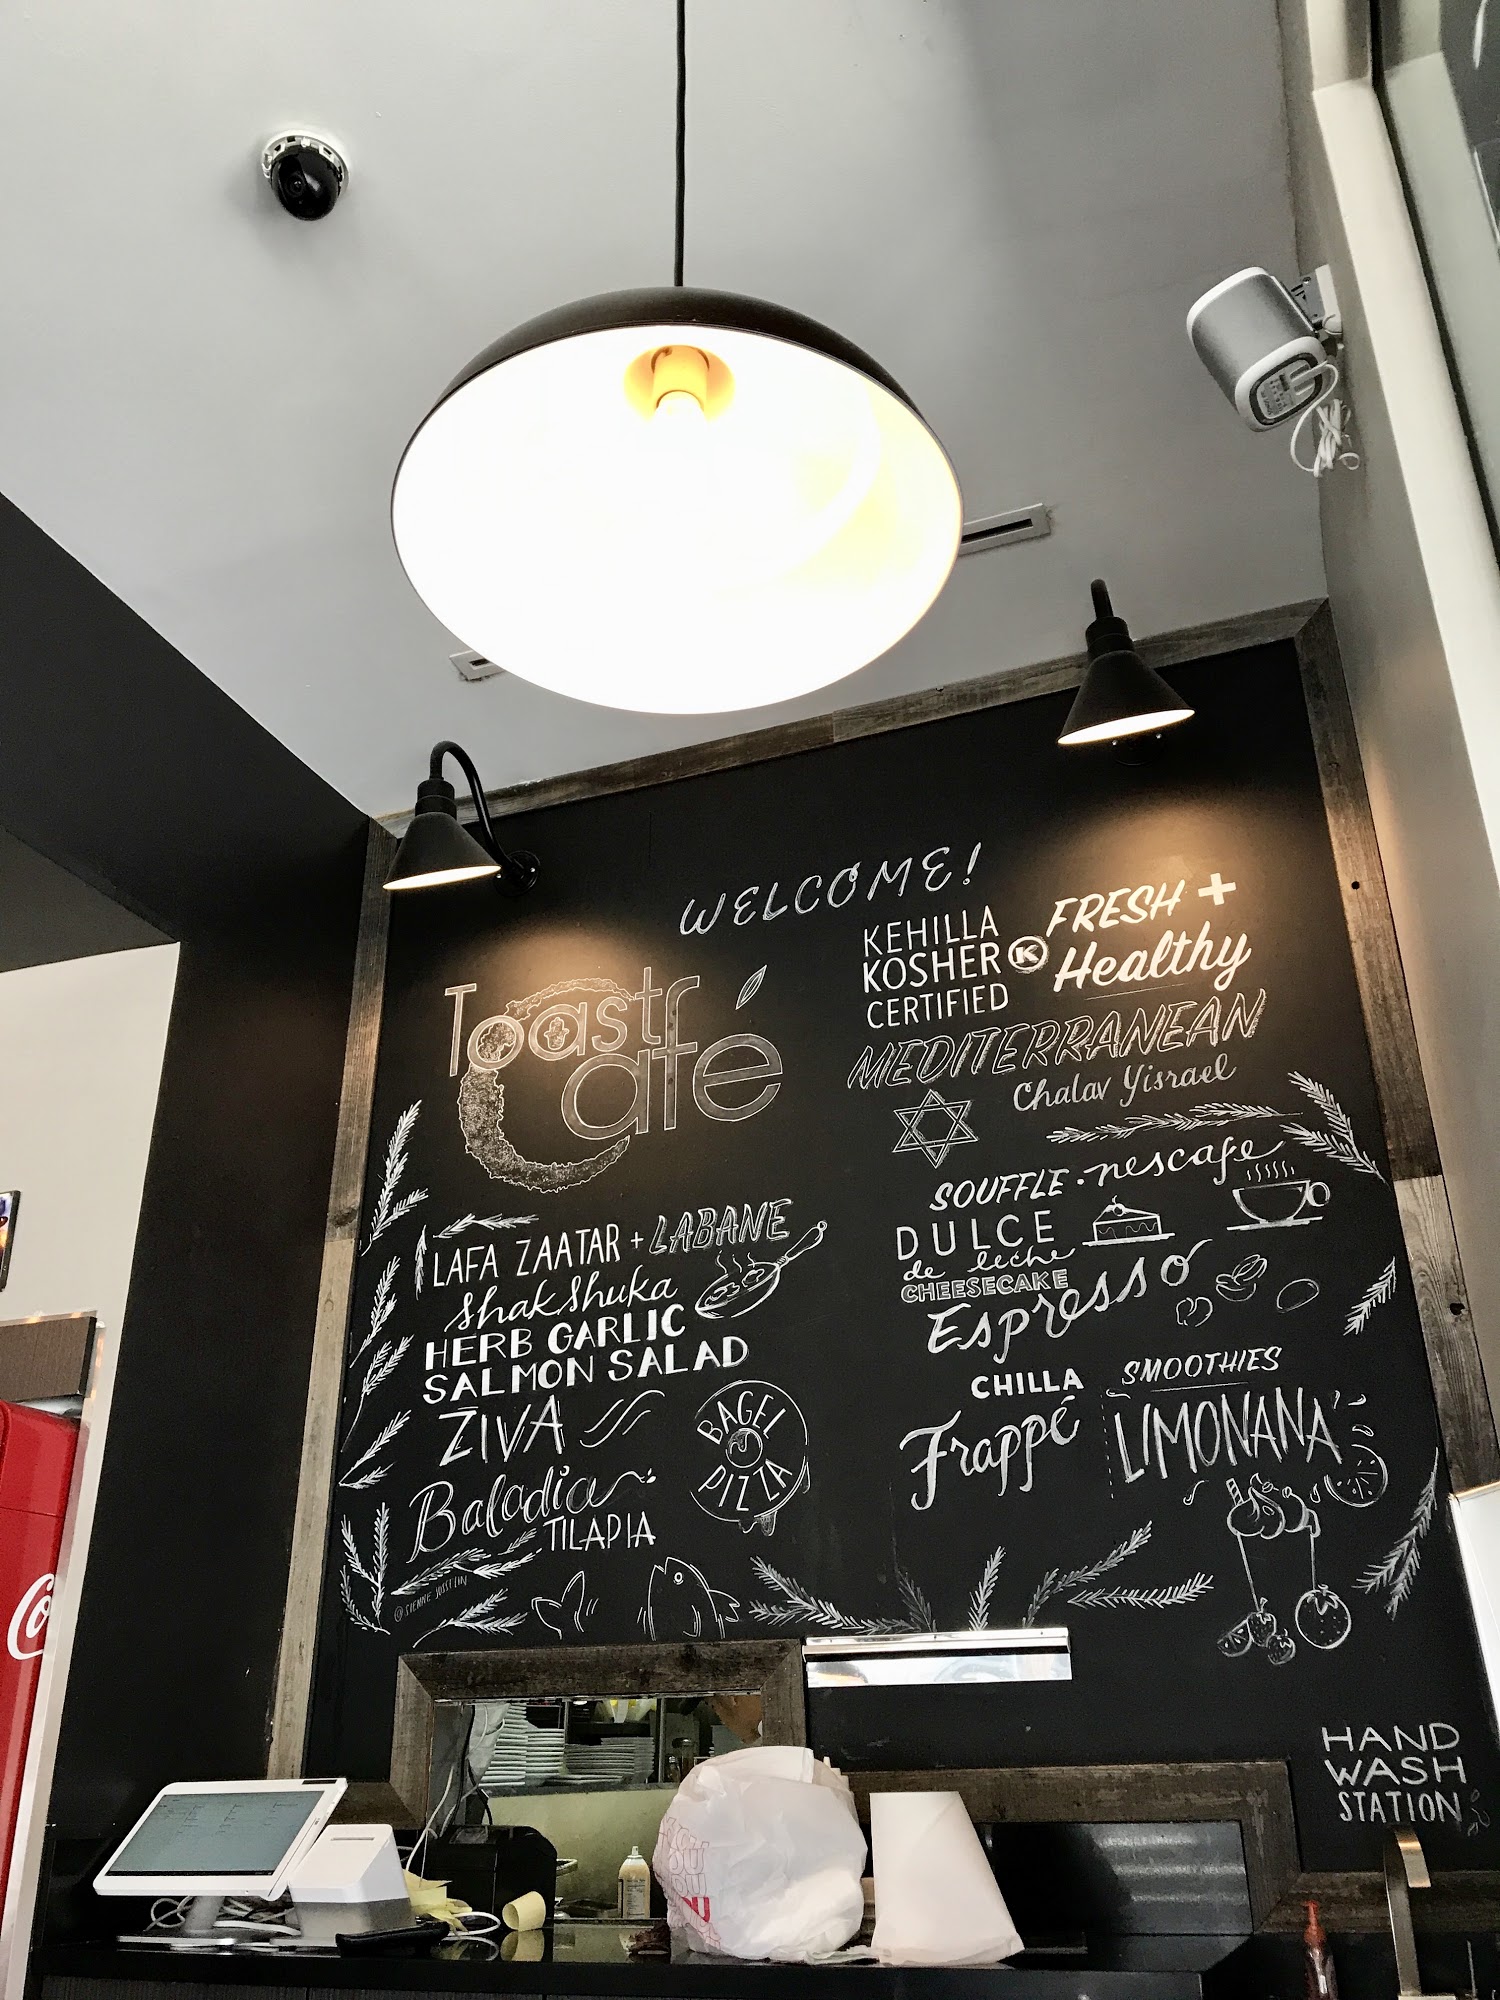 WELCOME!
Toast
Café
KEHILLA
KOSHER
CERTIFIED
K
FRESH +
Healthy
MEDITERRANEAN
Chalav Yisrael
LAFA ZAATAR + LABANE
Shakshuka
HERB GARLIC
SALMON SALAD
ZIVA
BAGEL
PIZZA
Baladia
TILAPIA
SOUFFLE · nescafe
DULCE
de leche
CHEESECAKE
Espresso
CHILLA
Frappé
SMOOTHIES
LIMONANA
HAND
WASH
STATION
Co
YOU